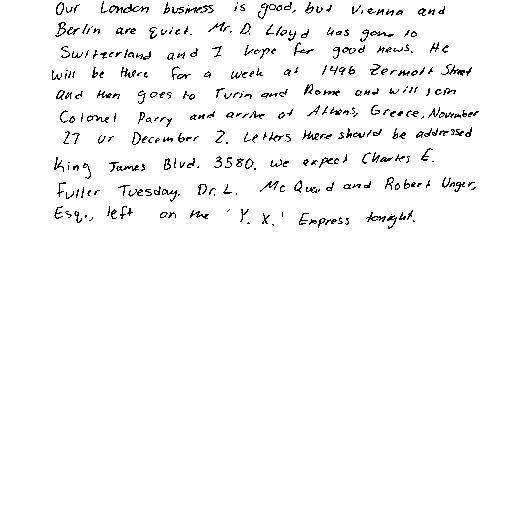 Our London business is good, but Vienna and
Berlin are quiet. Mr. D. Lloyd has gone to
Switzerland and I hope for good news. He
will be there for a week at 1496 Zermott Street
and then goes to Turin and Rome and will join
Colonel Parry and arrive at Athens, Greece, November
27 or December 2. Letters there should be addressed
King James Blvd. 3580. we expect Charles E.
Fuller Tuesday. Dr. L. McQuaid and Robert Unger,
Esq., left on the 'Y. X.' Express tonight.